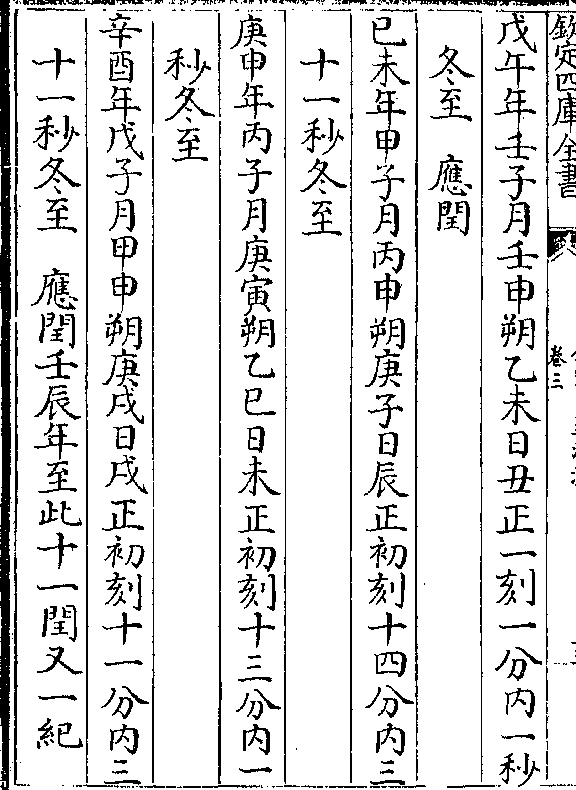 欽定四庫全書
卷三
戊午年壬子月壬申朔乙未日丑正一刻一分內一秒
冬至　應閏
己未年甲子月丙申朔庚子日辰正初刻十四分內三
十一秒冬至
庚申年丙子月庚寅朔乙巳日未正初刻十三分內一
秒冬至
辛酉年戊子月甲申朔庚戌日戌正初刻十一分內三
十一秒冬至　應閏壬辰年至此十一閏又一紀